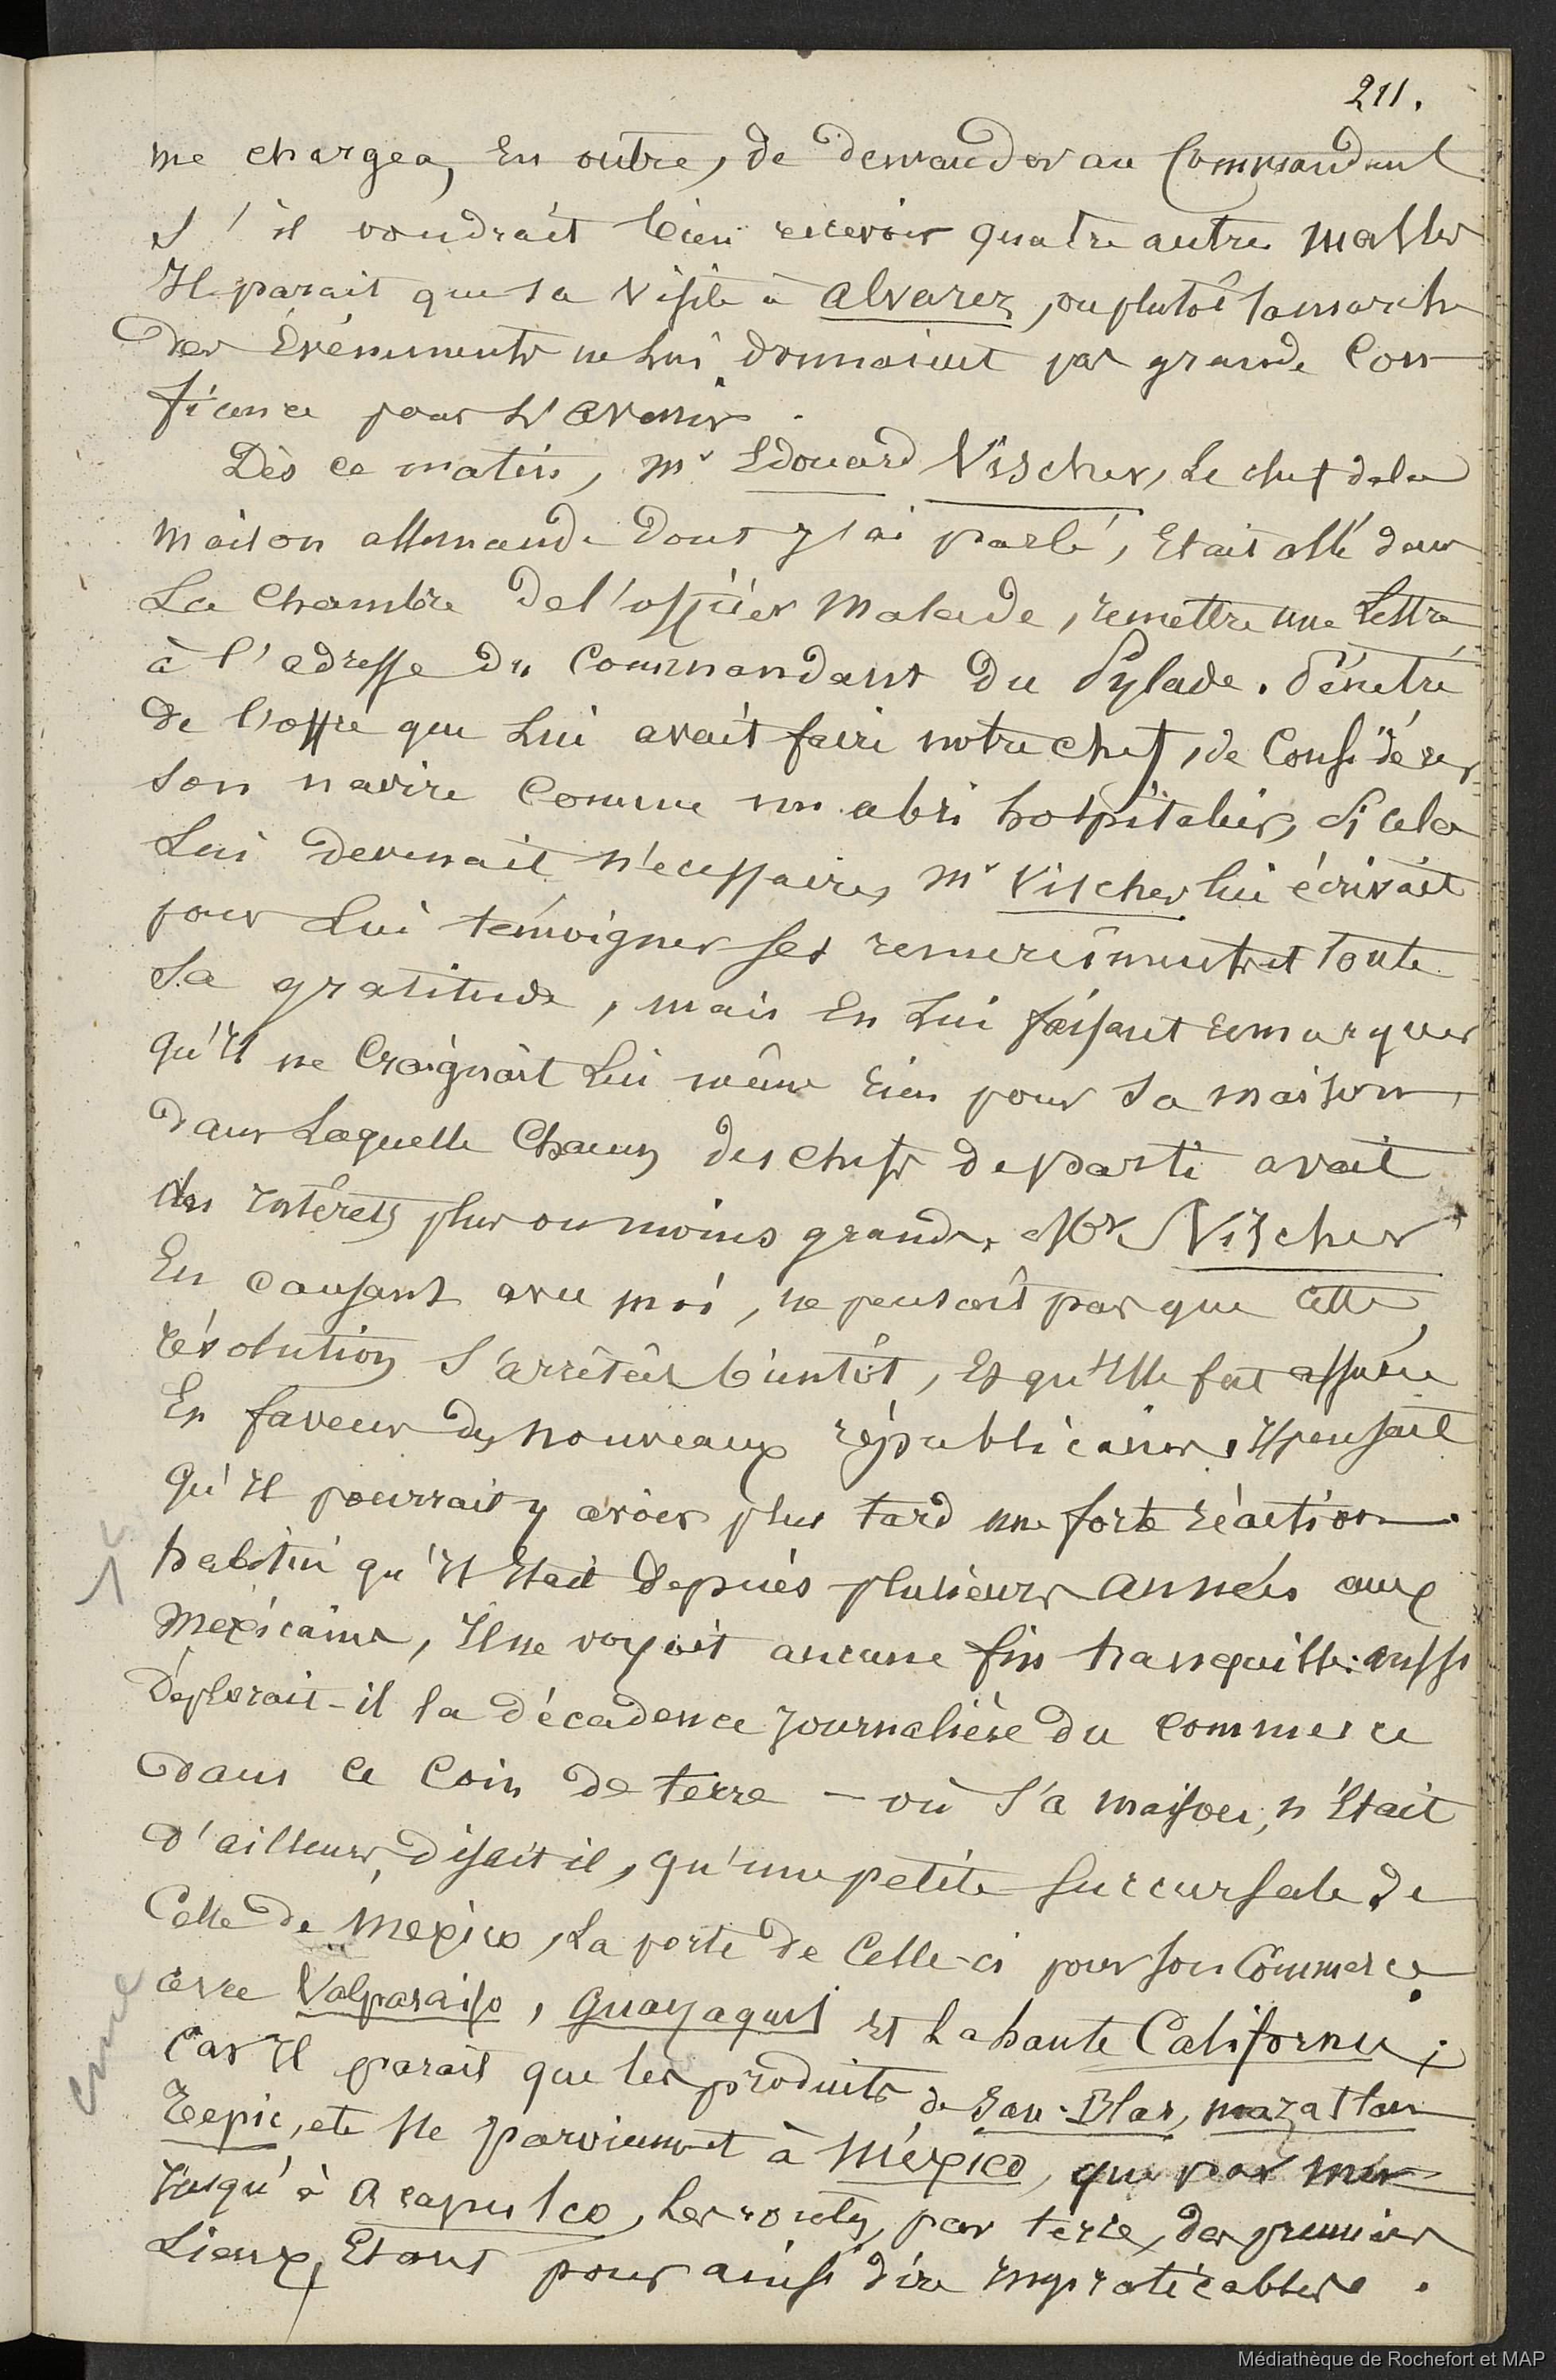 211.
me chargea, En outre, de demander au Commandant
s'il voudrait bien recevoir quatre autres malles
Il parait que sa visite à Alvarez, ou plutôt la marche
des Evénements ne lui donnaient pas grande Con
fiance pour L'avenir.
Dès ce matin, Mr Edouard Vischer, Le chef de la
maison allemande Dont j'ai parlé, Etait allé dans
La Chambre de l'officier Malade, remettre une Lettre
à l'adresse Du Commandant Du Pylade. Pénétré
de l'offre que Lui avait faire notre chef, de Considérer
son navire Comme un abri hospitalier, si cela
Lui devenait nécessaire, Mr Vischer lui écrivait
pour Lui témoigner ses remerciments et toute
sa gratitude, mais En Lui faisant remarquer
qu'Il ne Craignait Lui même rien pour sa maison,
dans Laquelle Chacun des chefs de parti avait
des Intérêts plus ou moins grands. Mr Vischer
En causant avec moi, ne pensait pas que cette
révolution s'arrêtât bientôt, Et qu'Elle fut assurée
En faveur des nouveaux républicains, Il pensait
qu'Il pourrait y avoir plus tard une forte réaction.
habitué qu'Il Etait depuis plusieurs années aux
Mexicains, Il ne voyait aucune fin tranquille: aussi
Déplorait-il la décadence Journalière du commerce
dans ce Coin de terre – où sa maison, n'Etait
d'ailleurs, disait il, qu'une petite succursale de
Celle de Mexico, La porte de Celle-ci pour son Commerce
avec Valparaiso, Guayaquil Et La haute Californie;
Car Il parait que les produits de San-Blas, Mazatlan
Tepic, etc Ne parviennent à México, que par mer
Jusqu'à Acapulco, Les routes, par terre, des premiers
Lieux, Etant pour ainsi dire Impraticables.
Médiathèque de Rochefort et MAP